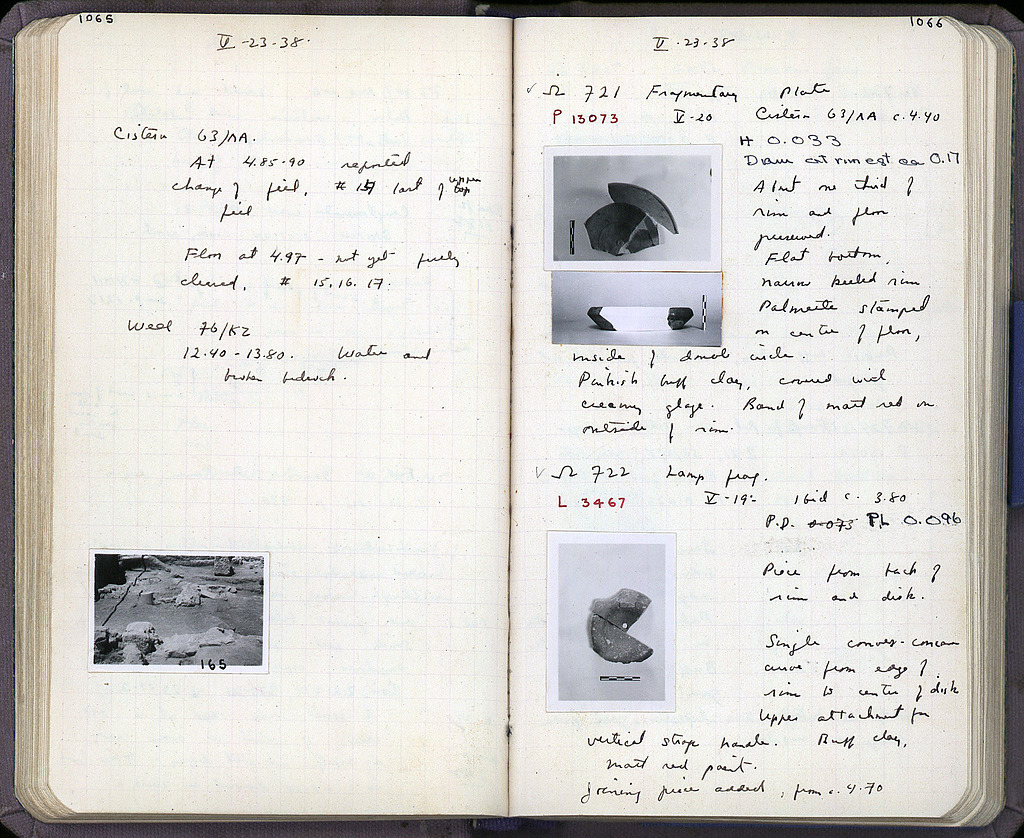 1065
V-23-38.
Cistern 63/ΛΑ.
At 4.85-90 reported
change of fill, # 17 last of upper
fill
Floor at 4.97 - not yet fully
cleared, # 15, 16, 17.
Well 76/ΚΖ
12.40-13.80. Water and
broken bedrock.
165
1066
V-23-38
√ Ω 721 Fragmentary Plate
P 13073 V-20 Cistern 63/ΛΑ c. 4.40
H 0.033
Diam at rim est ca 0.17
About one third of
rim and floor
preserved.
Flat bottom,
narrow beveled rim
Palmette stamped
on center of floor,
inside of double circle.
Pinkish buff clay, covered with
creamy glaze. Band of matt red on
outside of rim.
√ Ω 722 Lamp frag.
L 3467 V-19- Ibid c. 3.80
P.D. 0.073 P.L 0.096
Piece from back of
rim and disk.
Single convex-concave
curve from edge of
rim to center of disk
Upper attachment for
vertical strap handle. Buff clay,
matt red paint.
Joining piece added, from c. 4.70